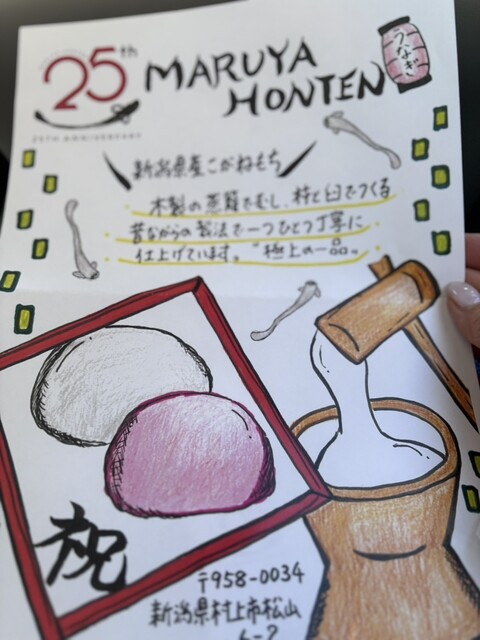 25th
MARUYA
HONTEN
うなぎ
25TH ANNIVERSARY
新潟県産こがねもち
木製の蒸籠でむし、杵と臼でつくる
昔ながらの製法で一つひとつ丁寧に
仕上げています。“極上の一品。
祝
〒958-0034
新潟県村上市松山